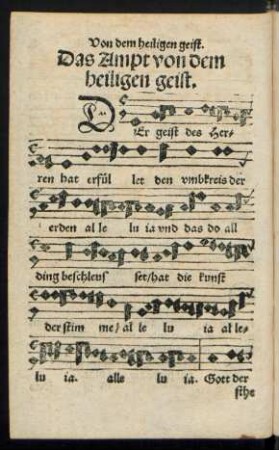 Von dem heiligen geist.
Das Ampt von dem
heiligen geist.
DEr geist des Her-
ren hat erfül let den vmbkreis der
erden al le lu ia vnd das do all
ding beschleus set/hat die kunst
der stim me/al le lu ia al le-
lu ia. alle lu ia. Gott der
sthe